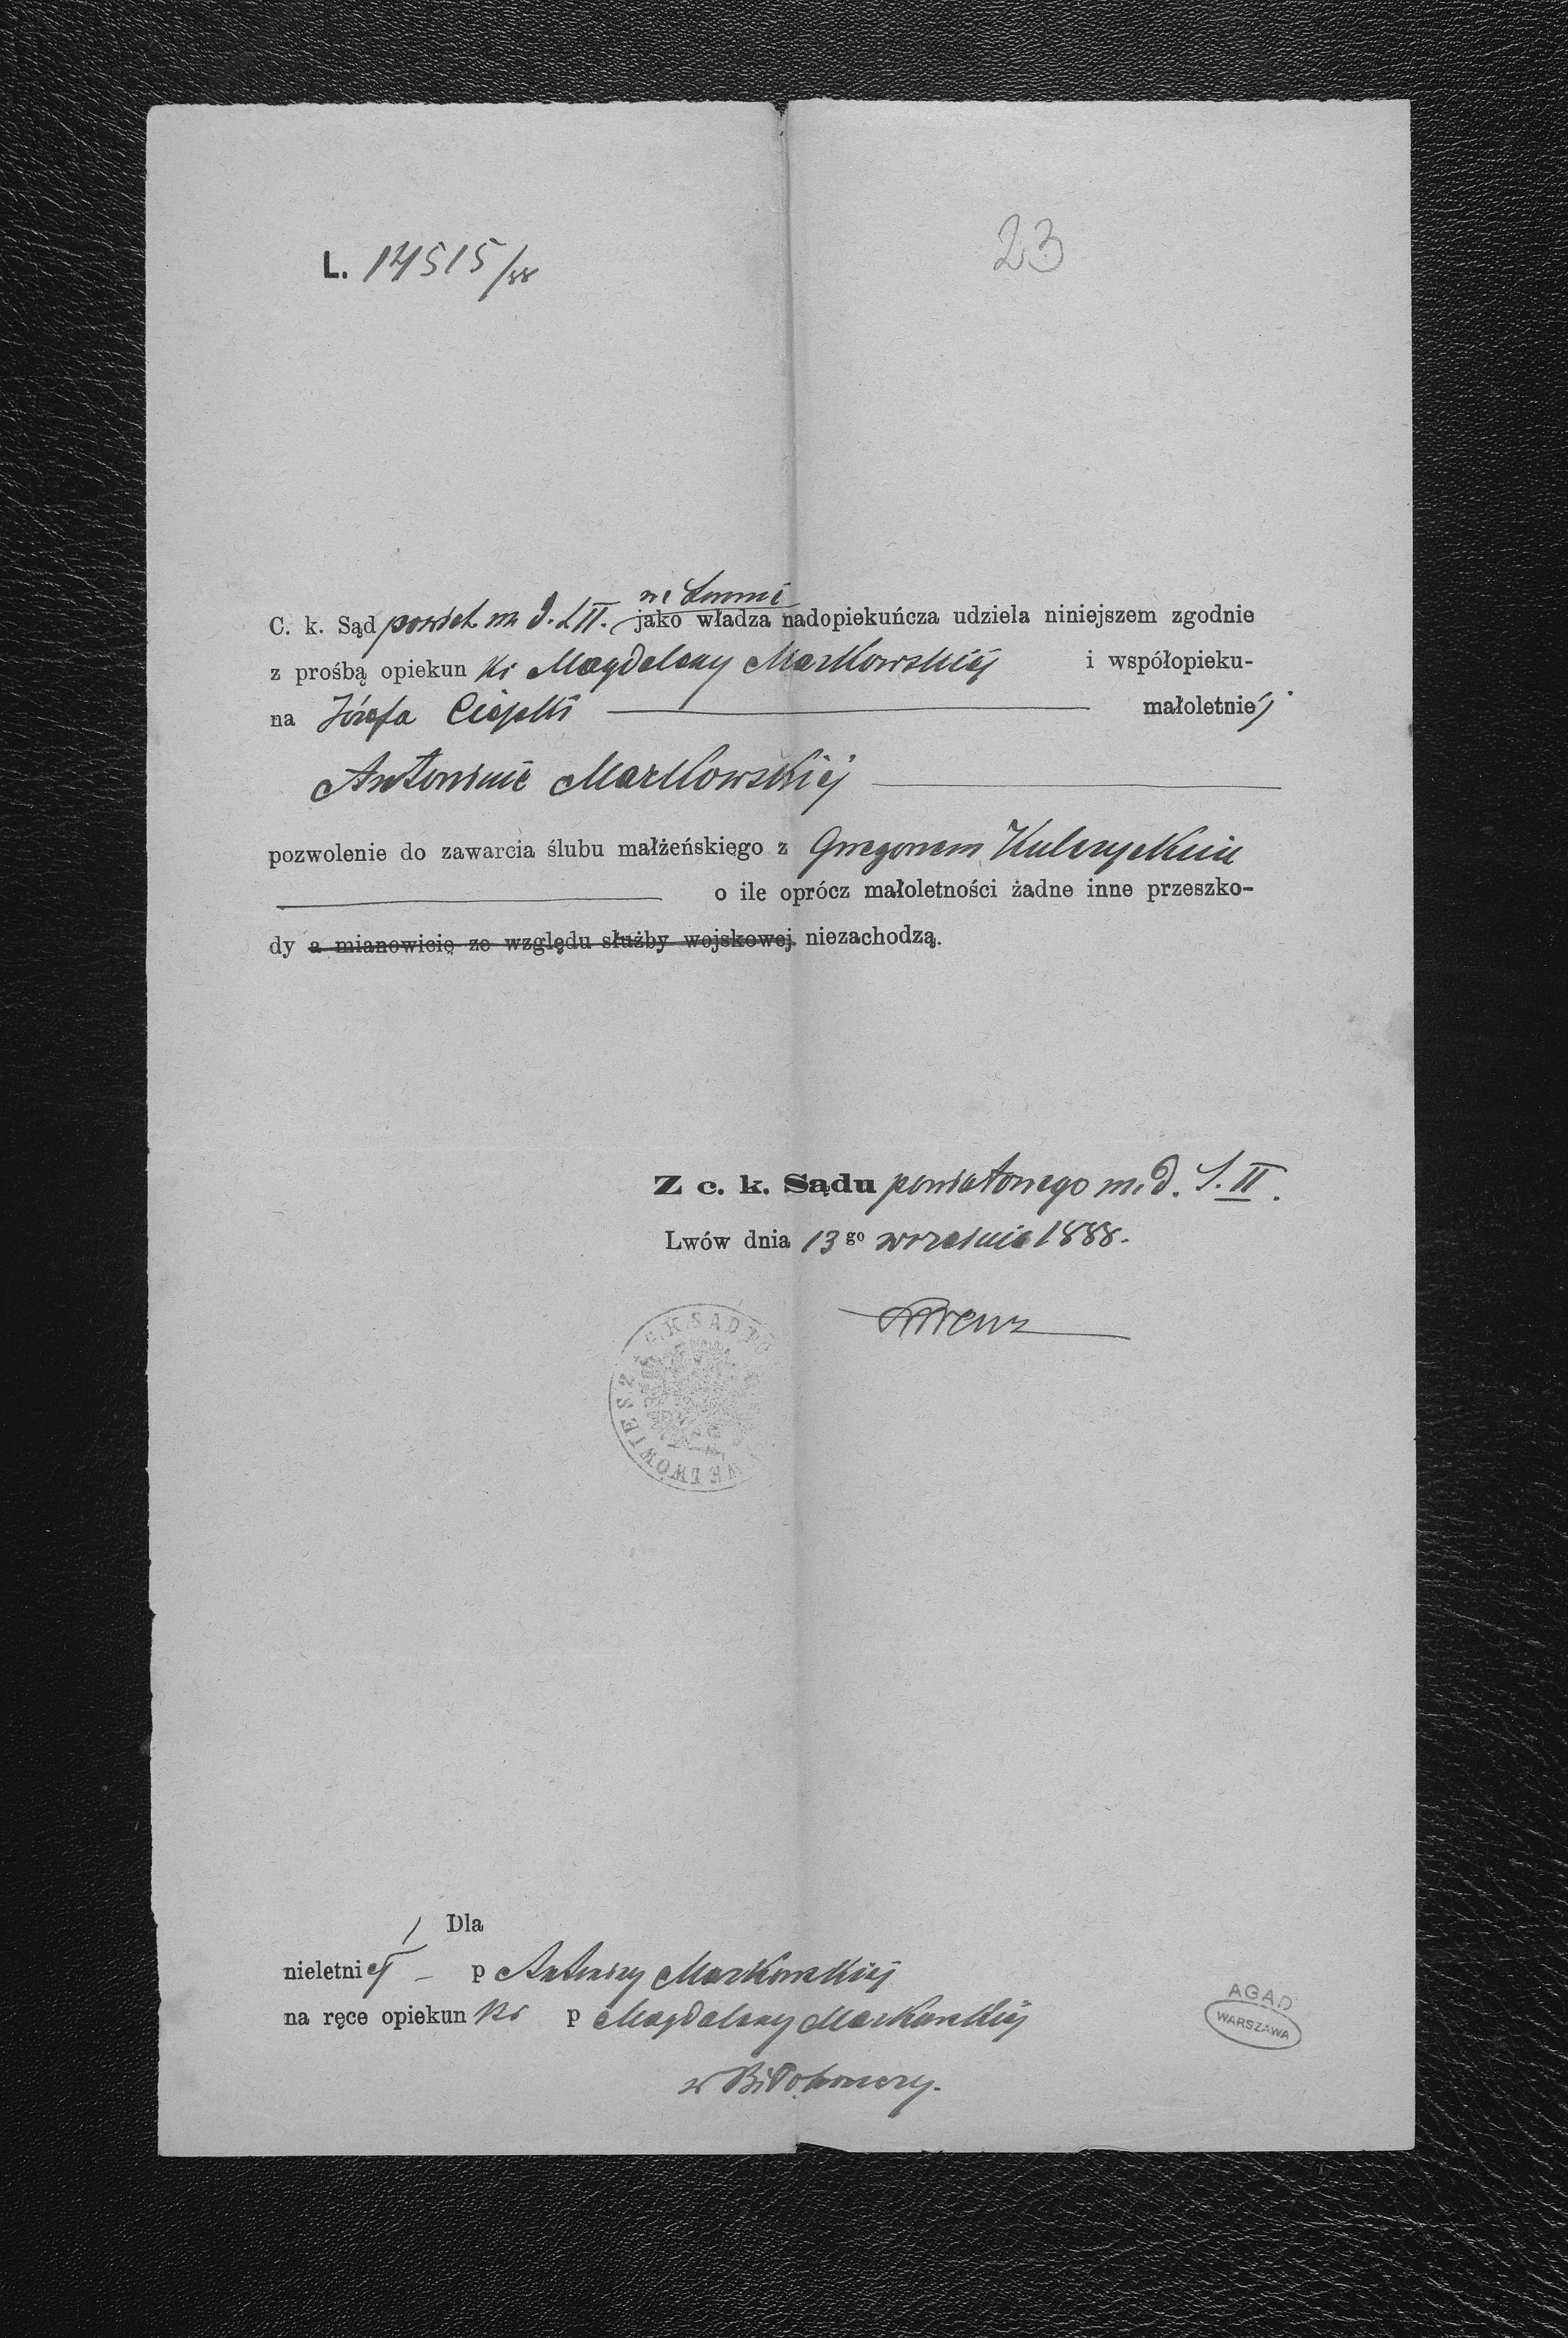 L. 14515/88
23
we Lwowie
C. k. Sąd powiat. m. d. S II. jako władza nadopiekuńcza udziela niniejszem zgodnie
z prośbą opiekun ki Magdaleny Markowskiej i współopieku-
na Józefa małoletniéj
Antoninie Markowskiej
pozwolenie do zawarcia ślubu małżeńskiego z Grzegorzem Kulczyckim
o ile oprócz małoletności żadne inne przeszko-
dy a mianowicie ze względu służby wojskowej niezachodzą.
Z c. k. Sądu powiatowego m. d. S. II.
Lwów dnia 13 go września 1888.
C. K. SĄD PO WE LWOWIE S 2
Dla
nieletniej p Antoniny Markowskiej
na ręce opiekun ki p Magdaleny Markowskiej
w Biłohorszy.
AGAD
WARSZAWA